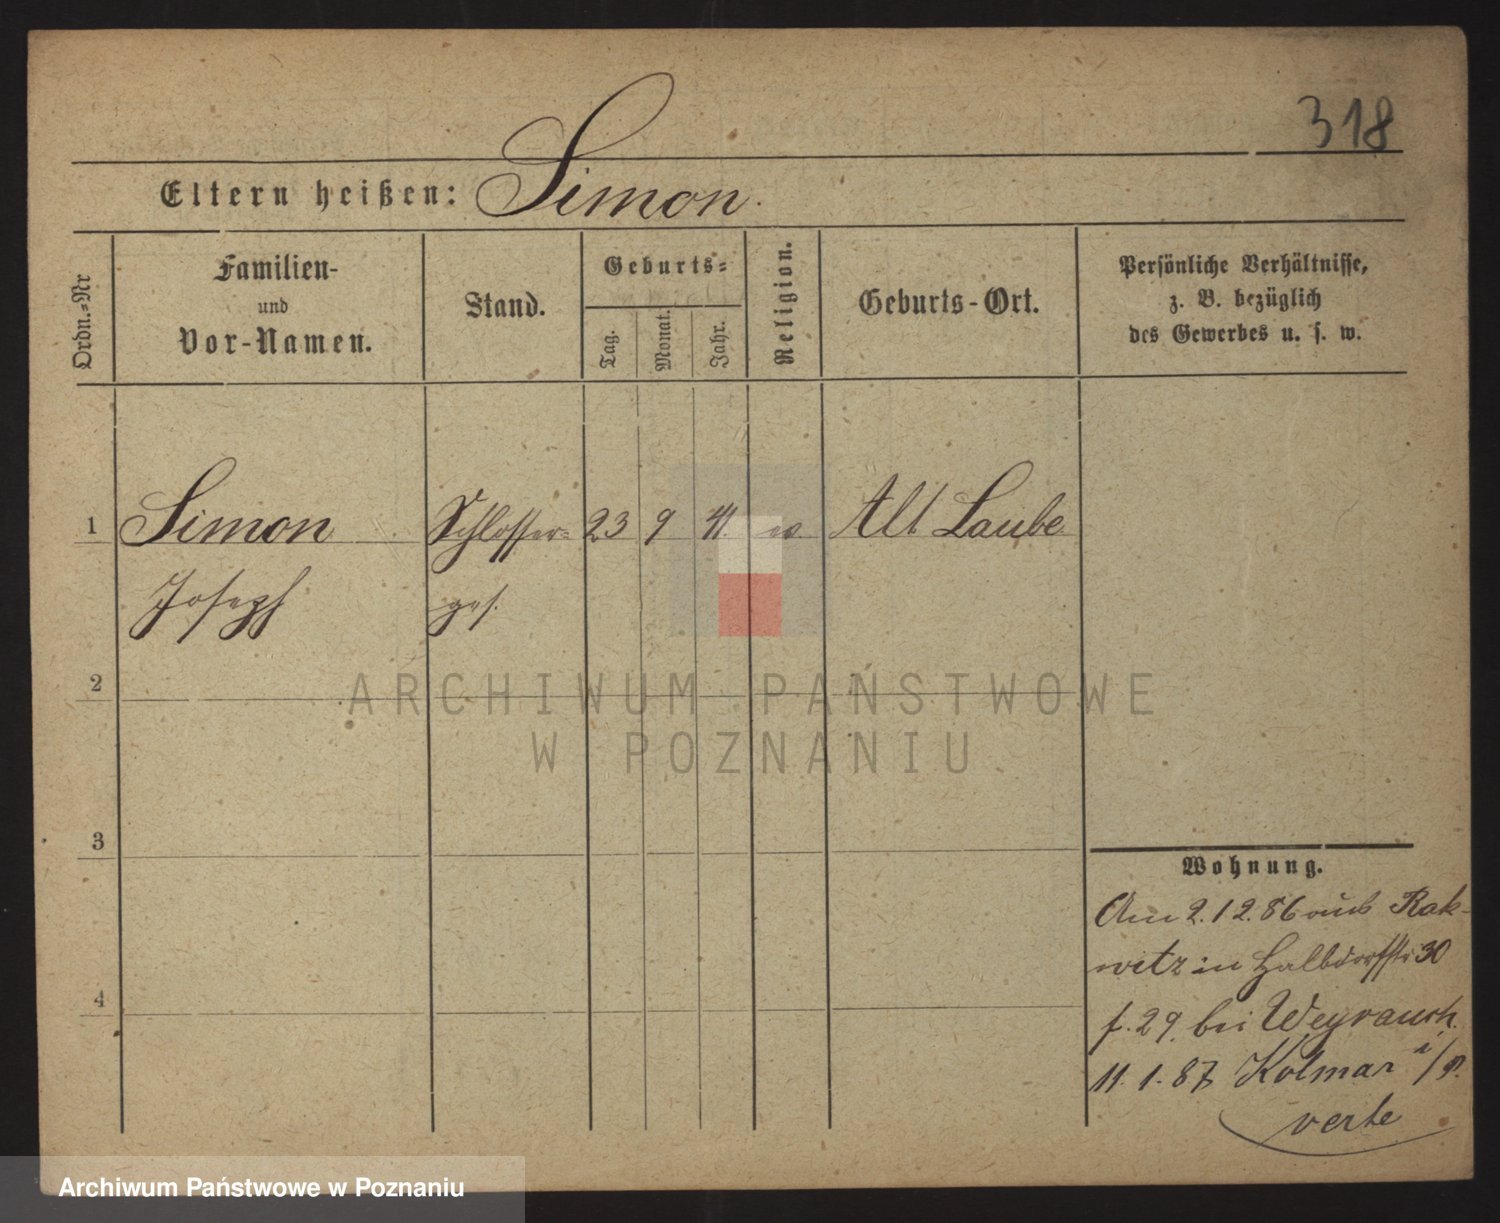 318
Eltern heißen: Simon.
Ordn.=Nr
Familien-
und
Vor-Namen.
Stand.
Geburts=
Tag.
Monat.
Jahr.
Religion.
Geburts-Ort.
Persönliche Verhältnisse,
z. B. bezüglich
des Gewerbes u. s. w.
1 Simon Schlosser= 23 9 Alt Laube
Joseph ges.
2
3
4
ARCHIWUM PAŃSTWOWE
W POZNANIU
Wohnung.
Am 2.12.86 aus Rak-
witz in Halbdorfstr 30
f. 29. bei Weyrauch.
11.1.87 Kolmar i/P.
verte
Archiwum Państwowe w Poznaniu